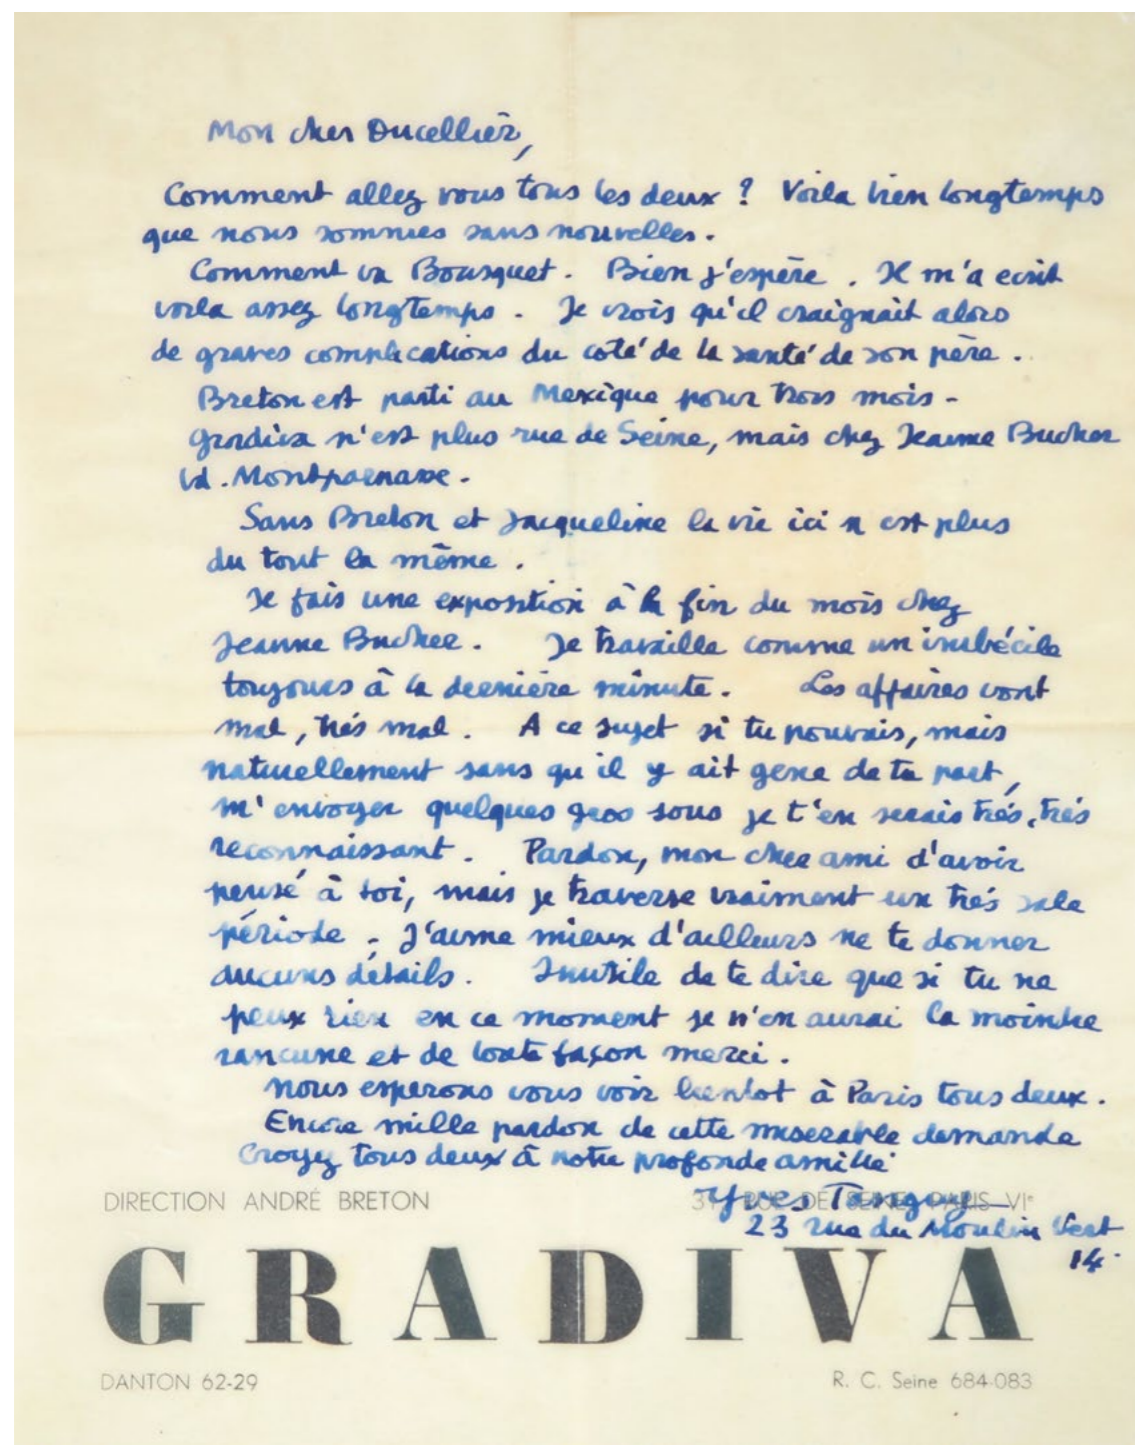 Mon cher Ducellier,
Comment allez vous tous les deux ? Voila bien longtemps
que nous sommes sans nouvelles.
Comment va Bousquet. Bien j'espère. Il m'a ecrit
voila assez longtemps. Je crois qu'il craignait alors
de graves complications du coté de la santé de son père.
Breton est parti au Mexique pour trois mois -
Gradiva n'est plus rue de Seine, mais chez Jeanne Bucher
bd. Montparnasse.
Sans Breton et Jacqueline la vie ici n est plus
du tout la même.
Je fais une exposition à la fin du mois chez
Jeanne Bucher. Je travaille comme un imbécile
toujours à la dernière minute. Les affaires vont
mal, trés mal. A ce sujet si tu pouvais, mais
naturellement sans qu'il y ait gene de ta part,
m'envoyer quelques gros sous je t'en serais trés, trés
reconnaissant. Pardon, mon cher ami d'avoir
pensé à toi, mais je traverse vraiment un trés sale
période. J'aime mieux d'ailleurs ne te donner
aucuns détails. Inutile de te dire que si tu ne
peux rien en ce moment je n'en aurai la moindre
rancune et de toute façon merci.
Nous esperons vous voir bientot à Paris tous deux.
Encore mille pardon de cette miserable demande
Croyez tous deux à notre profonde amitié
Yves Tanguy
DIRECTION ANDRÉ BRETON 31, RUE DE SEINE, PARIS-VIe
23 rue du Moulin Vert
14
GRADIVA
DANTON 62-29 R. C. Seine 684-083